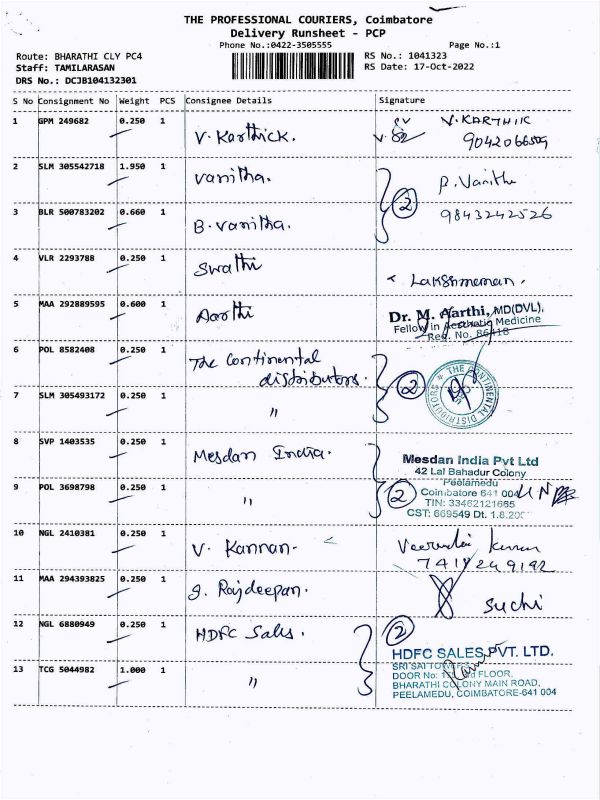 THE PROFESSIONAL COURIERS, Coimbatore
Delivery Runsheet - PCP
Phone No.:0422-3505555 Page No.:1
Route: BHARATHI CLY PC4 RS No.: 1041323
Staff: TAMILARASAN RS Date: 17-Oct-2022
DRS No.: DCJB104132301
S No Consignment No Weight PCS Consignee Details Signature
1 GPM 249682 0.250 1 V. Karthick. V. KARTHIK
9042066509
2 SLM 305542718 1.950 1 vanitha. 2 P. Vanitha
3 BLR 500783202 0.660 1 B. vanitha. 9843242526
4 VLR 2293788 0.250 1 Swathi Lakshmeman.
5 MAA 292889595 0.600 1 Aarthi Dr. M. Aarthi, MD(DVL),
Fellow in Aesthetic Medicine
Reg. No. 86418
6 POL 8582408 0.250 1 The Continental
distributors. 2 THE CONTINENTAL DISTRIBUTORS
7 SLM 305493172 0.250 1 "
8 SVP 1403535 0.250 1 Mesdan India. Mesdan India Pvt Ltd
42 Lal Bahadur Colony
Peelamedu
9 POL 3698798 0.250 1 " 2 Coimbatore 641 004
TIN: 33462121665
CST: 669549 Dt. 1.8.20
10 NGL 2410381 0.250 1 V. Kannan.
7418249192
11 MAA 294393825 0.250 1 g. Rajdeepan. Suchi
12 NGL 6880949 0.250 1 HDFC Sales. 2
HDFC SALES PVT. LTD.
13 TCG 5044982 1.000 1 " SRI SAI TOWERS
DOOR No: FLOOR,
BHARATHI COLONY MAIN ROAD,
PEELAMEDU, COIMBATORE-641 004